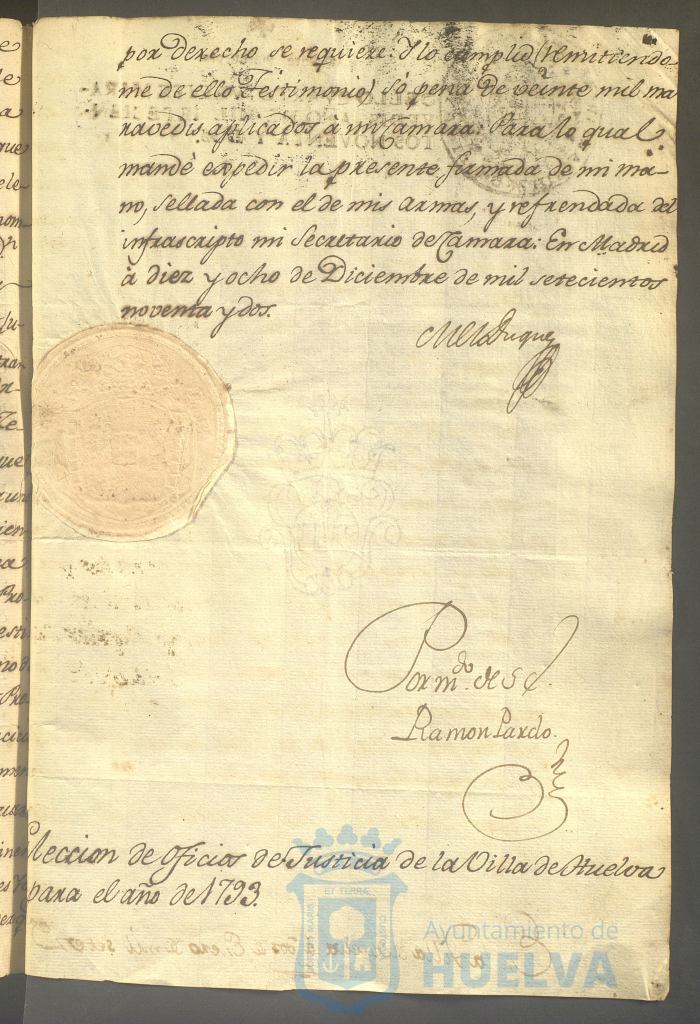 por derecho se requiere: Y lo cumplid (remitiendo
me de ello Testimonio) só pena de veinte mil ma
ravedis aplicados à mi Camara: Para lo qual
mandè expedir la presente, firmada de mi ma-
no, sellada con el de mis armas, y refrendada del
infrascripto mi Secretario de Camara: En Madrid
à diez y ocho de Diciembre de mil setecientos
noventa y dos.
Duque
Por m.do de S E.
Ramon Pardo.
Eleccion de Oficios de Justicia de la Villa de Huelva
para el año de 1793.
Ayuntamiento de
HUELVA